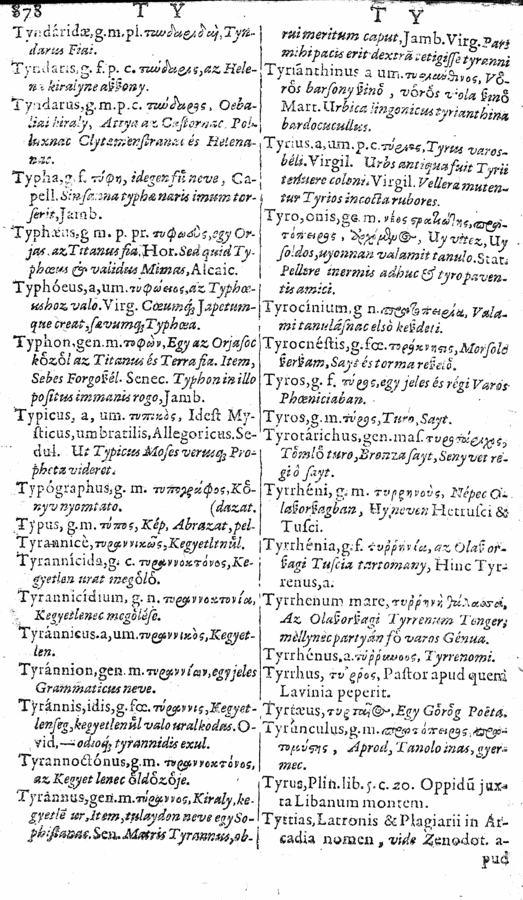 878 T Y
Tyndáridæ, g.m.pl. τυνδαρίδαι, Tyn-
darus Fiai.
Tyndaris, g. f. p. c. az Hele-
na kiralyne aßßony.
Tyndarus, g.m.p.c. Oeba-
liai kiraly, Attya az Castornac, Pol-
luxnac Clytemnestranac és Helena-
nac.
Typha, g. f. τύφη, idegen fit neve, Ca-
pell. typhæ naris imum tor-
serit, Jamb.
Typhœus, g m. p. pr. τυφωεὺς, egy Or-
jas, az Titanus fia, Hor. Sed quid Ty-
phœus & validus Mimas, Alcaic.
Typhóeus, a, um. az Typhœ-
ushoz valo. Virg. Cœumq; Japetum-
que creat, sævumq; Typhœa.
Typhon, gen.m. τυφών, Egy az Orjasoc
kȯzȯl az Titanus és Terra fia. Item,
Sebes Forgoßél. Senec. Typhon in illo
positus immanis rogo, Jamb.
Typicus, a, um. τυπικὸς, Idest My-
sticus, umbratilis, Allegoricus. Se-
dul. Ut Typicus Moses verusq; Pro-
pheta videret.
Typógraphus, g. m. τυπογράφος, Kȯ-
nyvnyomtato. (dazat.
Typus, g.m. τύπος, Kép, Abrazat, pel-
Tyrannicè, τυραννικῶς, Kegyetlenȗl.
Tyrannicida, g. c. τυραννοκτόνος, Ke-
gyetlen urat megȯlȯ.
Tyrannicídium, g. n. τυραννοκτονία,
Kegyetlenec megȯlése.
Tyránnicus. a, um. τυραννικὸς, Kegyet-
len.
Tyránnion, gen. m. τυραννίων, egy jeles
Grammaticus neve.
Tyránnis, idis, g. fœ. τυραννὶς, Kegyet-
lenseg, kegyetlenȗl valo uralkodas. O-
vid, — odioq; tyrannidis exul.
Tyrannoctónus, g.m. τυραννοκτόνος,
az Kegyetlenec ȯldȯzȯje.
Tyránnus, gen.m. τύραννος, Kiraly, ke-
gyetlē ur, Item, tulaydon neve egy So-
phistanac. Sen. Matris Tyrannus, ob-
T Y
rui meritum caput, Jamb. Virg. Pars
mihi pacis erit dextrā tetigisse tyranni
Tyriánthinus a um. Vȯ-
rȯs barsony ßinȯ, vȯrȯs viola ßinȯ
Mart. Urbica lingonicus tyrianthina
bardocucullus.
Tyrius, a, um, p. c. τύριος, Tyrius varos-
béli. Virgil. Urbs antiqua fuit Tyrii
tenuere coloni. Virgil. Vellera muten-
tur Tyrios incocta rubores.
Tyro, onis, ge. m. Uy vitez, Uy
soldos, uyonnan valamit tanulo. Stat.
Pellere inermis adhuc & tyro paven-
tis amici.
Tyrocínium, g n. Vala-
mi tanulásnac elsȯ kezdeti.
Tyrocnéstis, g. fœ. τυρόκνηστις, Morsolȯ
ßerßam, Sayt és torma reßelȯ.
Tyros, g. f. τύρος, egy jeles és régi Varos
Phœniciaban.
Tyros, g.m. τυρὸς, Turo, Sayt.
Tyrotárichus, gen. mas. τυροτάριχος,
Tȯmlȯ turo, Bronza sayt, Senyvet re-
gi ȯ sayt.
Tyrrhéni, g. m. τυρρηνοὺς, Népec O-
laßorßagban, Hy neven Hetrusci &
Tusci.
Tyrrhénia, g. f. τυῤῥηνία, az Olaß or-
ßagi Tuscia tartomany, Hinc Tyr-
renus, a.
Tyrrhenum mare,
Az Olaßorßagi Tyrrenum Tenger;
mellynec partyán fȯ varos Génua.
Tyrrhénus, a. Tyrrenomi.
Tyrrhus, τύῤῥος, Pastor apud quem
Lavinia peperit.
Tyrtæus, Egy Gȯrȯg Poëta.
Tyrúnculus, g.m.
Aprod, Tanolo inas, gyer-
mec.
Tyrus, Plin. lib. 5. c. 20. Oppidū jux-
ta Libanum montem.
Tyttias, Latronis & Plagiarii in Ar-
cadia nomen, vide Zenodot. a-
pud